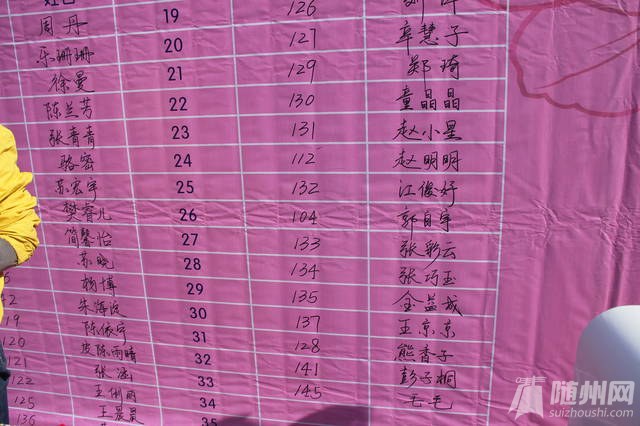 姓名 126
周丹 19 127 辜慧子
乐珊珊 20 129 郑琦
徐曼 21 130 童晶晶
陈兰芳 22 131 赵小星
张青青 23 112 赵明明
骆密 24 132 江俊好
苏宏宇 25 104 郭自宇
樊睿儿 26 133 张彩云
简馨怡 27 134 张巧玉
苏晓 28 135 金益城
杨博 29 137 王京京
朱海 30 128 熊香子
19 陈俊宇 31 141 彭子桐
120 陈雨晴 32 145 毛毛
121 张 33
122 王 34
125 王晨 35
136
随州网
suizhoushi.com